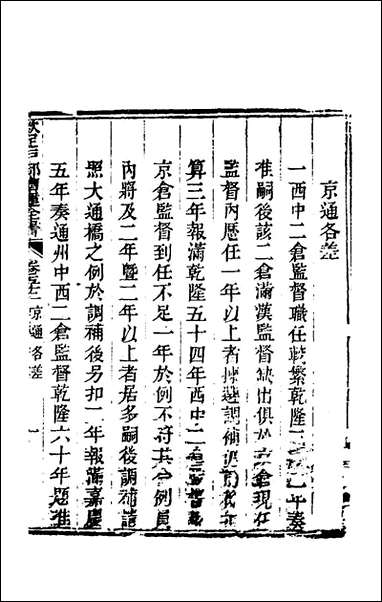 京通各差
一西中二倉監督職任較繁乾隆二年奏
准嗣後該二倉滿漢監督缺出俱於京倉現任
監督內歷任一年以上者揀選調補
算三年報滿乾隆五十四年西中二倉監督
京倉監督到任不足一年於例不符其合例員
內將及二年暨二年以上者居多嗣後調補請
照大通橋之例於調補後另扣一年報滿嘉慶
五年奏通州中西二倉監督乾隆六十年題准
欽定戶部漕運全書
卷五十二 京通各差
一